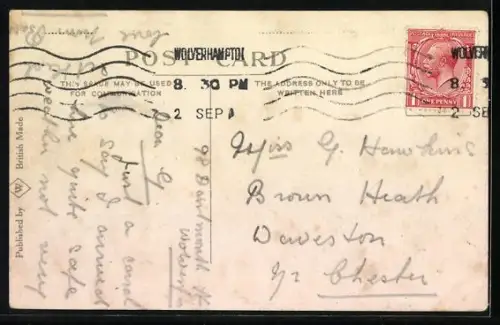 POST CARD
THIS SPACE MAY BE USED
FOR COMMUNICATION
THE ADDRESS ONLY TO BE
WRITTEN HERE
WOLVERHAMPTON
8. 30 PM
2 SEP
WOLVERH
8. 3
2 SEP
ONE PENNY
Miss G. Hawkins
Brown Heath
Nr Chester
98 Dartmouth St
Dear G.
Just a card
to say I arrived
here quite safe
weather not very
love from
Published by W British Made